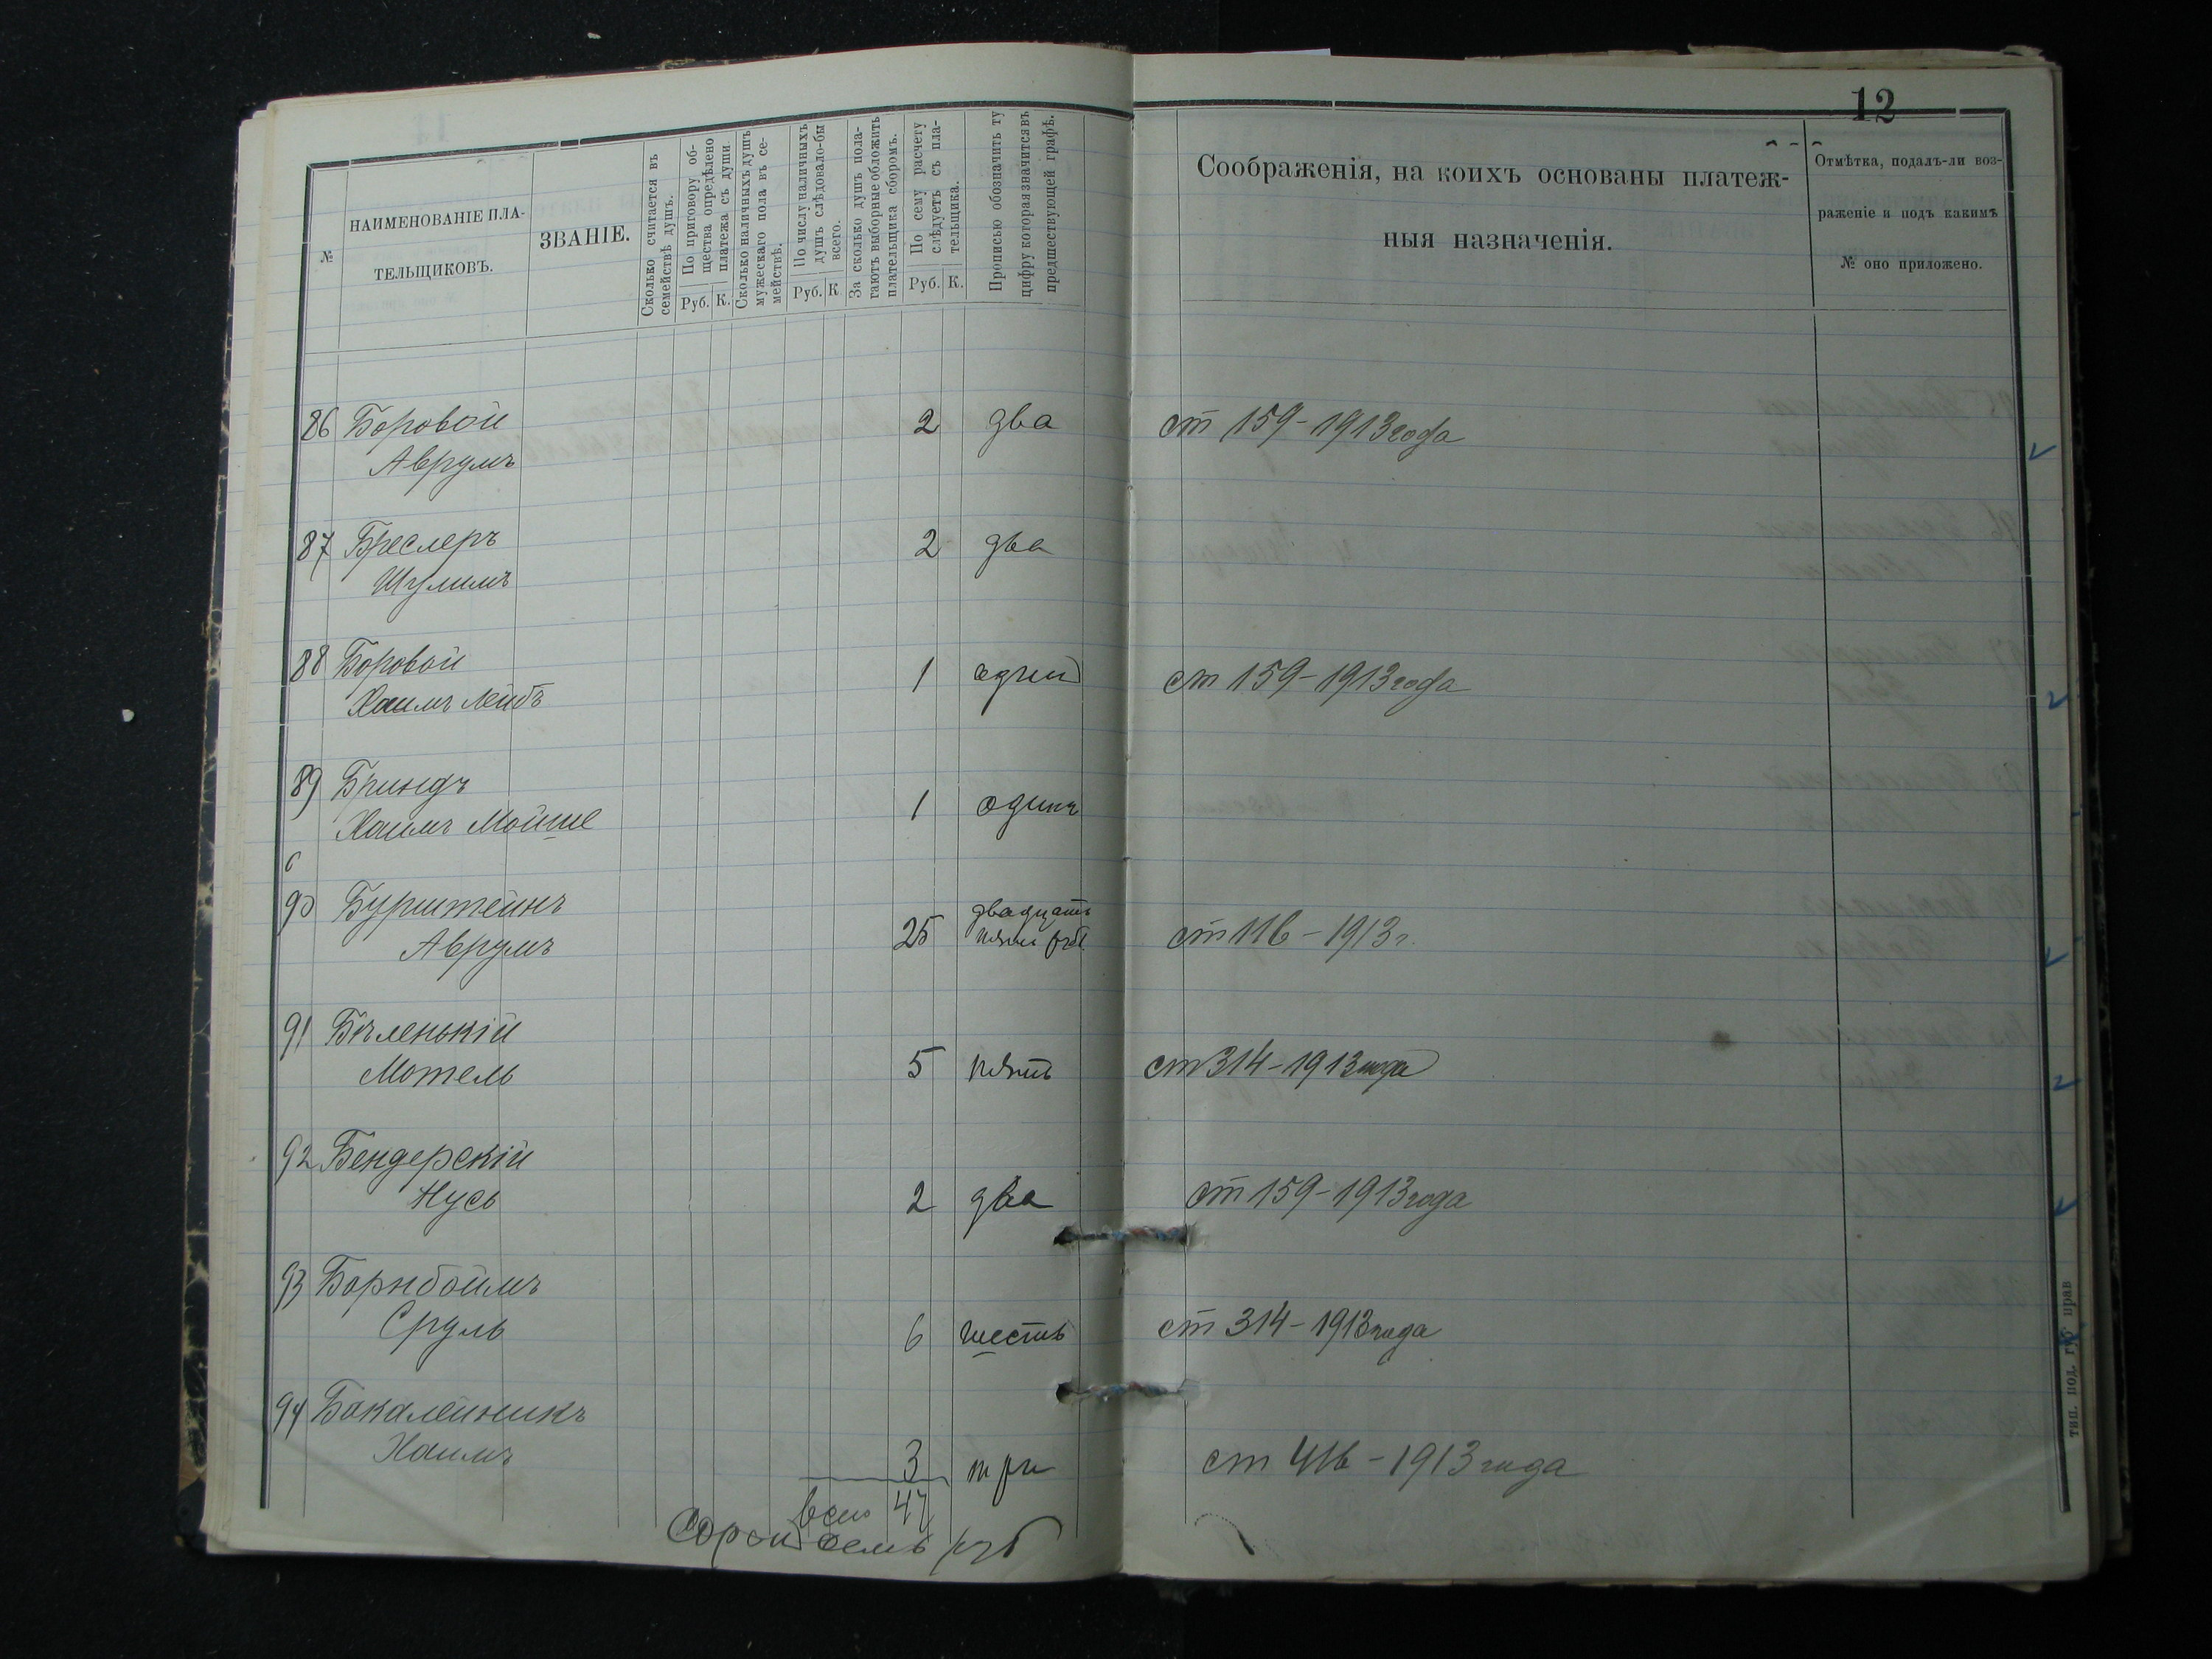 12
№
НАИМЕНОВАНІЕ ПЛА-
ТЕЛЬЩИКОВЪ.
ЗВАНІЕ.
Сколько считается въ
семействѣ душъ.
По приговору об-
щества опредѣлено
платежа съ души.
Руб. К.
Сколько наличныхъ душъ
мужескаго пола въ се-
мействѣ.
По числу наличныхъ
душъ слѣдовало-бы
всего.
Руб. К
За сколько душъ пола-
гаютъ выборные обложить
плательщика сборомъ.
По сему расчету
слѣдуетъ съ пла-
тельщика.
Руб. К.
Прописью обозначить ту
цифру которая значится въ
предшествующей графѣ.
Соображенія, на коихъ основаны платеж-
ныя назначенія.
Отмѣтка, подалъ-ли воз-
раженіе и подъ какимъ
№ оно приложено.
86 Боровой
Аврумъ 2 два ст 159-1913 года
87 Бреслеръ 2 два
Шулимъ
88 Боровой
Хаимъ Лейбъ 1 один ст 159-1913 года
89 Бриндъ
Хаимъ Мойше 1 одинъ
90 Бурштейнъ двадцать
Аврумъ 25 пять руб ст 116-1913 г.
91 Бѣленькій
Мотель 5 пять ст 314-1913 года
92 Бендерскій
Нусь 2 два ст 159-1913 года
93 Борнбоймъ
Сруль 6 шесть ст 314-1913 года
94 Бакалейникъ
Хаимъ 3 три ст 416-1913 года
всего 47
Сорок семь руб
тип. под. губ прав